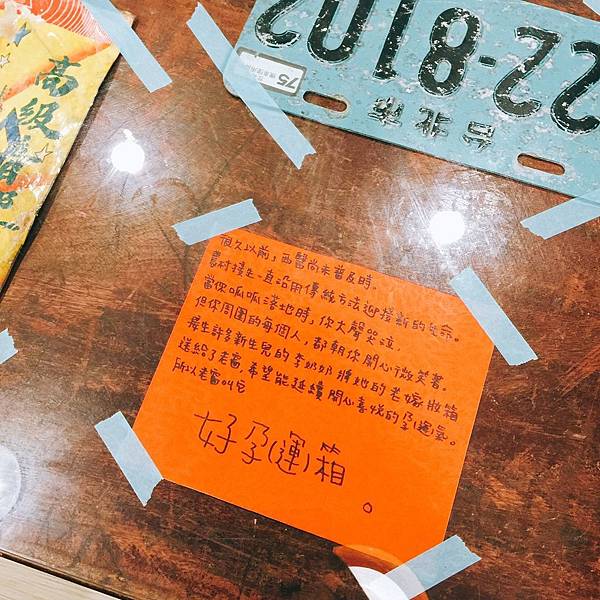 高級
22-8102
75
很久以前，西醫尚未普及時。
農村接生一直沿用傳統方法迎接新的生命。
當你呱呱落地時，你大聲哭泣，
但你周圍的每個人，都朝你開心微笑著。
接生許多新生兒的李奶奶將她的老嫁妝箱
送給了老窩，希望能延續開心喜悅的孕(運)氣。
所以老窩叫它
好孕(運)箱。